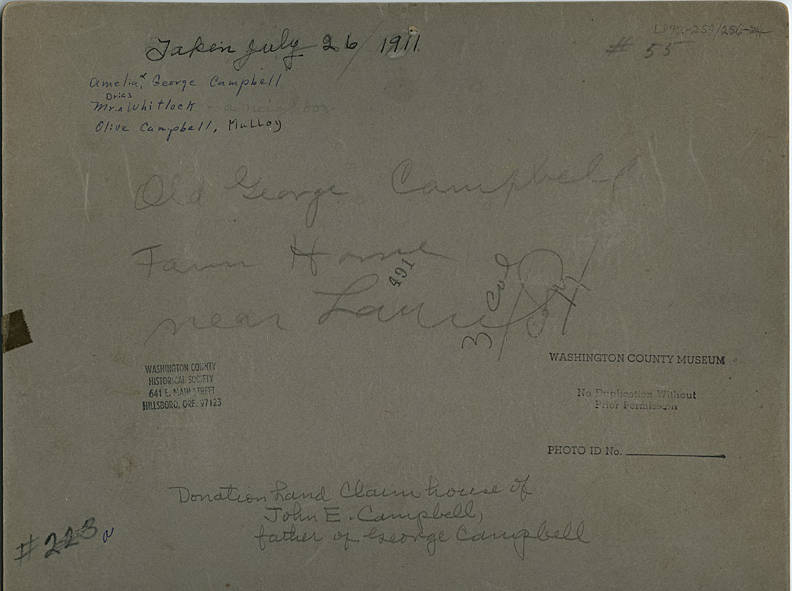 Taken July 26/1911
# 55
Amelia & George Campbell
Dries
Mrs Whitlock
Olive Campbell, Mulloy
Old George Campbell
Farm Home
near Laurel
491
3 Col
WASHINGTON COUNTY
HISTORICAL SOCIETY
641 E. MAIN STREET
HILLSBORO, ORE. 97123
WASHINGTON COUNTY MUSEUM
No Duplication Without
Prior Permission
PHOTO ID No.
Donation Land Claim house of
John E. Campbell,
father of George Campbell
#223